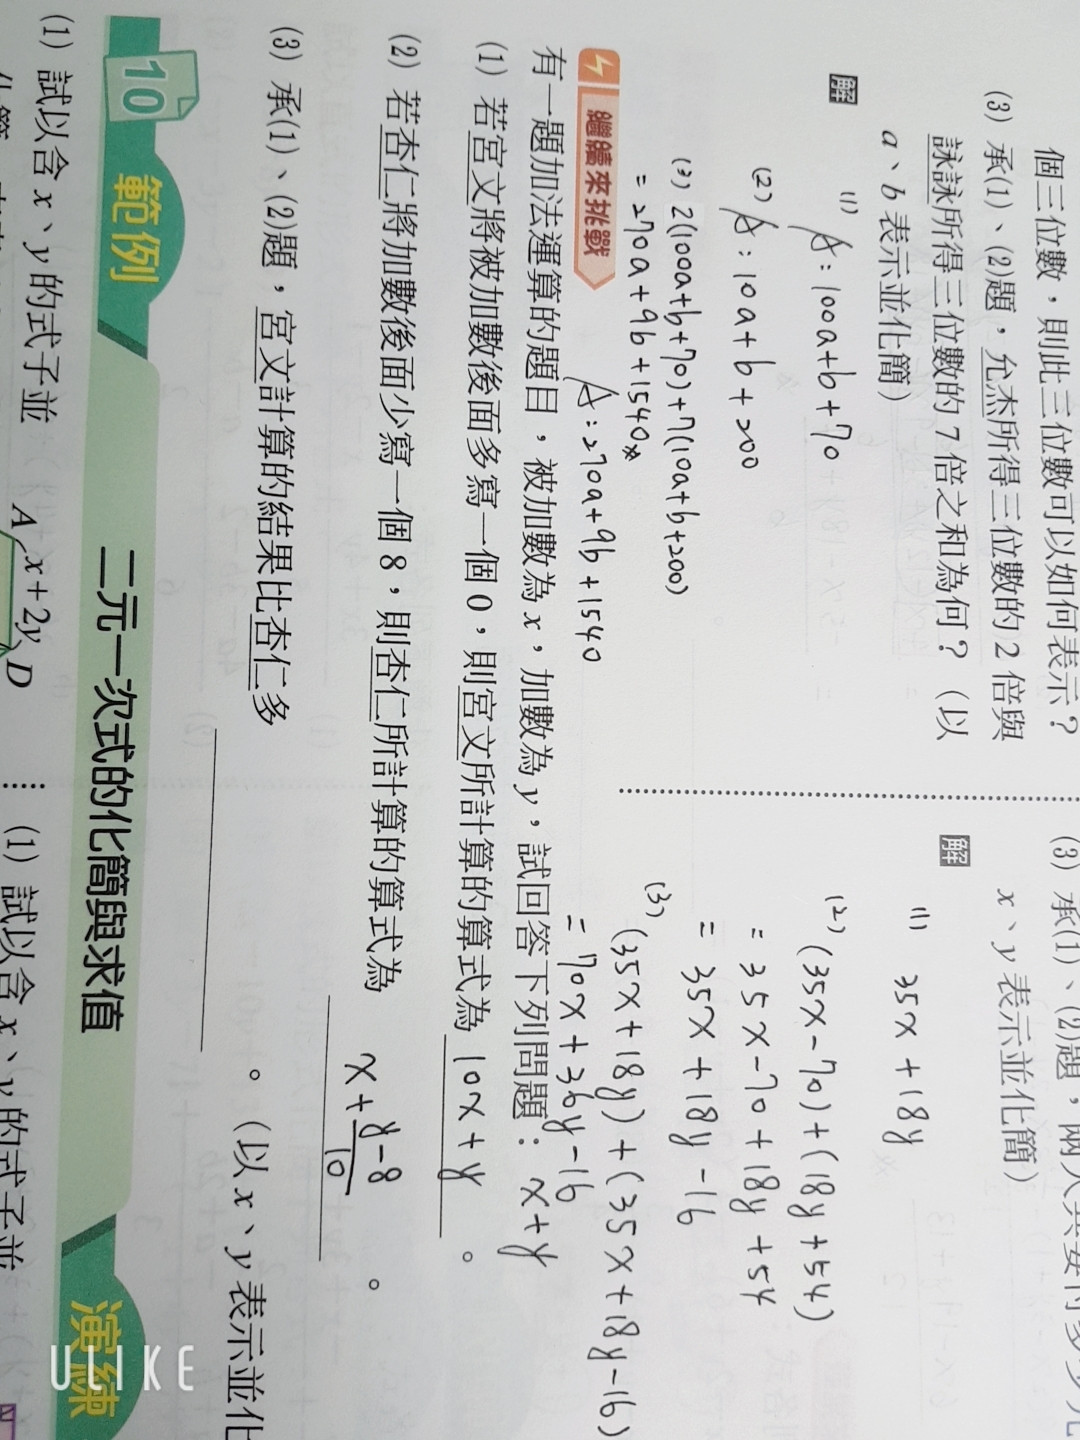 個三位數，則此三位數可以如何表示？
(3) 承(1)、(2)題，允杰所得三位數的 2 倍與
詠詠所得三位數的 7 倍之和為何？（以
a、b 表示並化簡）
解
(1)
A：100a+b+70
(2)
A：10a+b+200
(3) 2(100a+b+70)+7(10a+b+200)
=270a+9b+1540
A：270a+9b+1540
(3) 承(1)、(2)題，兩人共要付多少元
x、y 表示並化簡）
解
(1) 35x+18y
(2) (35x-70)+(18y+54)
=35x-70+18y+54
=35x+18y-16
(3) (35x+18y)+(35x+18y-16)
=70x+36y-16
繼續來挑戰
有一題加法運算的題目，被加數為 x，加數為 y，試回答下列問題： x+y
(1) 若宮文將被加數後面多寫一個 0，則宮文所計算的算式為 10x+y 。
(2) 若杏仁將加數後面少寫一個 8，則杏仁所計算的算式為 x+\frac{y-8}{10} 。
(3) 承(1)、(2)題，宮文計算的結果比杏仁多 。（以 x、y 表示並化
10 範例 二元一次式的化簡與求值 演練
(1) 試以含 x、y 的式子並
A x+2y D
(1) 試以含 x、y 的式子並
ULIKE